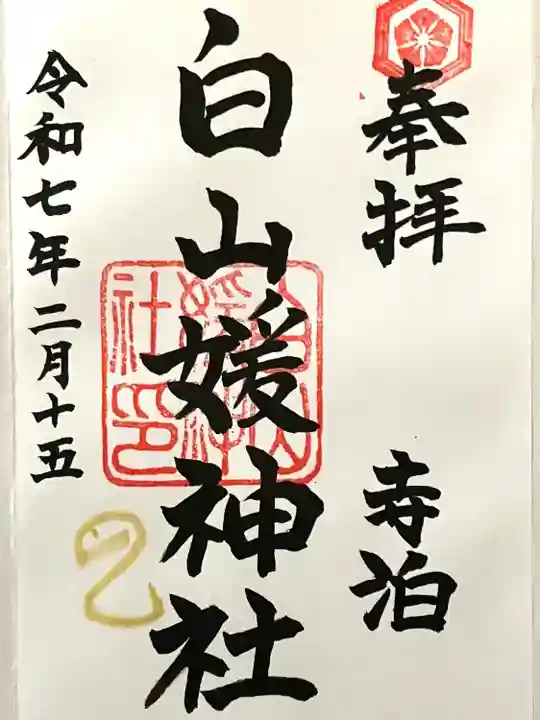 奉拝
寺泊
白山媛神社
白山媛神社印
令和七年二月十五